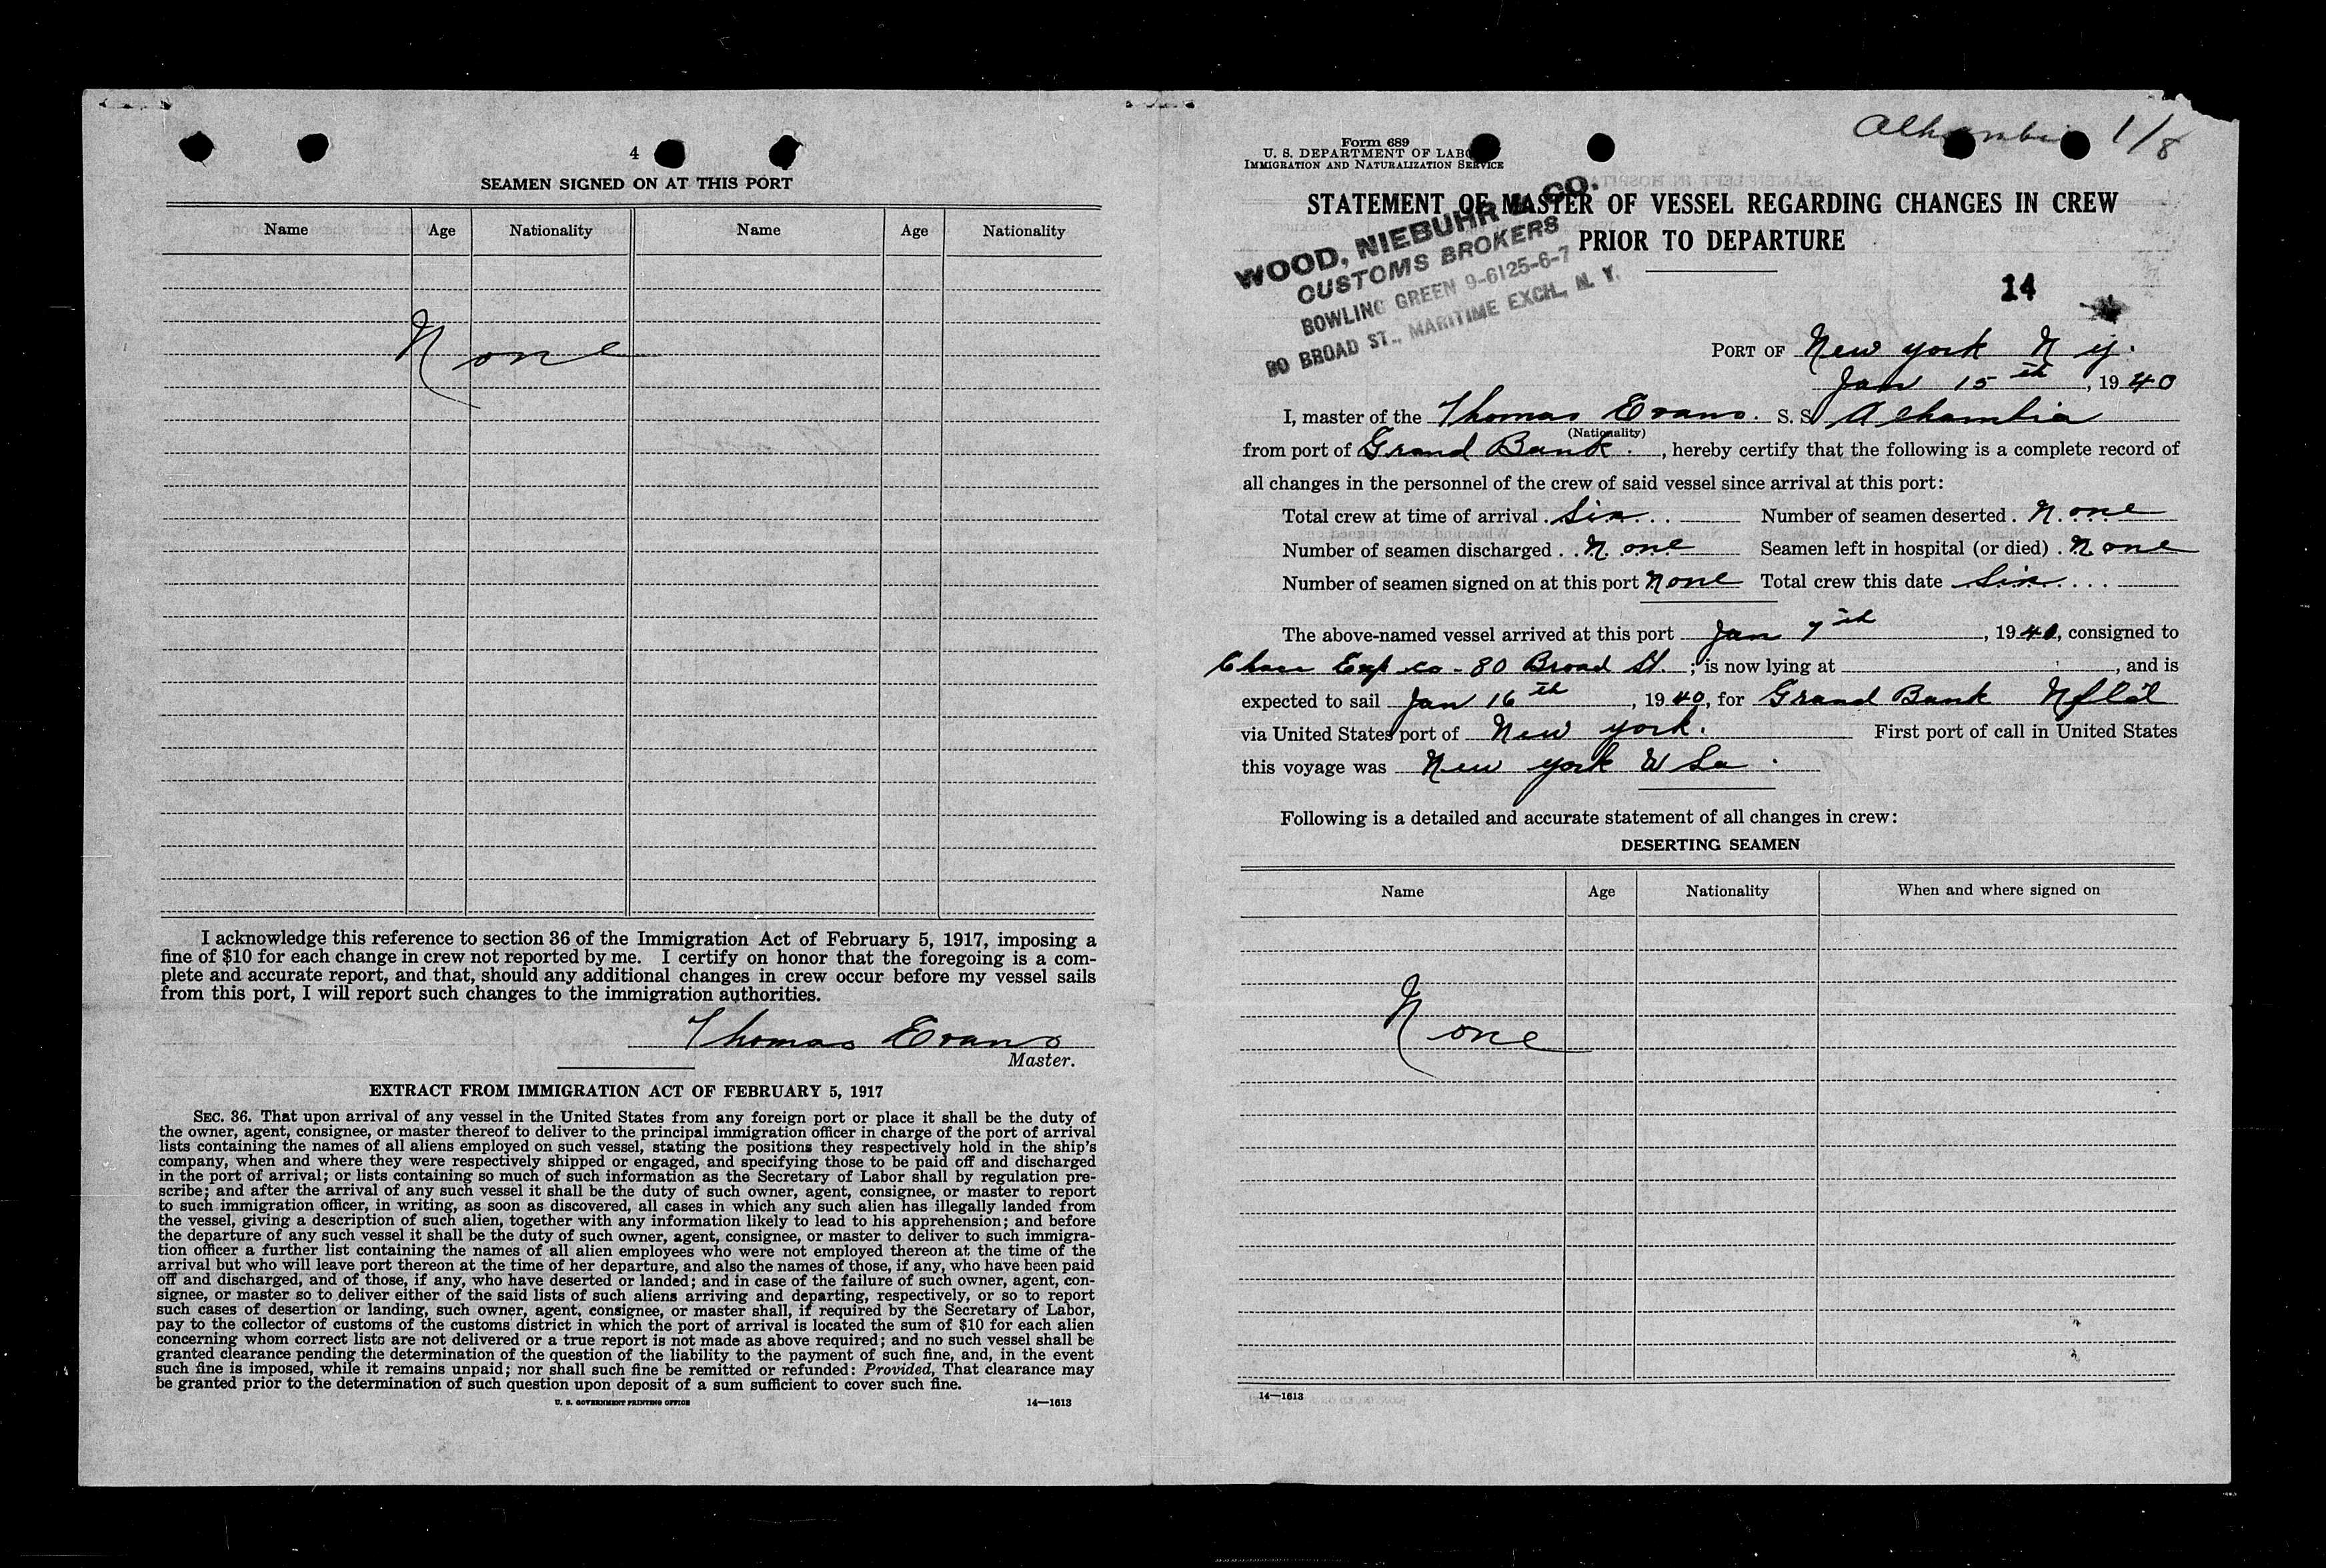 4
SEAMEN SIGNED ON AT THIS PORT
Name Age Nationality Name Age Nationality
None
I acknowledge this reference to section 36 of the Immigration Act of February 5, 1917, imposing a
fine of $10 for each change in crew not reported by me. I certify on honor that the foregoing is a com-
plete and accurate report, and that, should any additional changes in crew occur before my vessel sails
from this port, I will report such changes to the immigration authorities.
Thomas Evans
Master.
EXTRACT FROM IMMIGRATION ACT OF FEBRUARY 5, 1917
SEC. 36. That upon arrival of any vessel in the United States from any foreign port or place it shall be the duty of
the owner, agent, consignee, or master thereof to deliver to the principal immigration officer in charge of the port of arrival
lists containing the names of all aliens employed on such vessel, stating the positions they respectively hold in the ship's
company, when and where they were respectively shipped or engaged, and specifying those to be paid off and discharged
in the port of arrival; or lists containing so much of such information as the Secretary of Labor shall by regulation pre-
scribe; and after the arrival of any such vessel it shall be the duty of such owner, agent, consignee, or master to report
to such immigration officer, in writing, as soon as discovered, all cases in which any such alien has illegally landed from
the vessel, giving a description of such alien, together with any information likely to lead to his apprehension; and before
the departure of any such vessel it shall be the duty of such owner, agent, consignee, or master to deliver to such immigra-
tion officer a further list containing the names of all alien employees who were not employed thereon at the time of the
arrival but who will leave port thereon at the time of her departure, and also the names of those, if any, who have been paid
off and discharged, and of those, if any, who have deserted or landed; and in case of the failure of such owner, agent, con-
signee, or master so to deliver either of the said lists of such aliens arriving and departing, respectively, or so to report
such cases of desertion or landing, such owner, agent, consignee, or master shall, if required by the Secretary of Labor,
pay to the collector of customs of the customs district in which the port of arrival is located the sum of $10 for each alien
concerning whom correct lists are not delivered or a true report is not made as above required; and no such vessel shall be
granted clearance pending the determination of the question of the liability to the payment of such fine, and, in the event
such fine is imposed, while it remains unpaid; nor shall such fine be remitted or refunded: Provided, That clearance may
be granted prior to the determination of such question upon deposit of a sum sufficient to cover such fine.
U. S. GOVERNMENT PRINTING OFFICE 14—1613
1/8
Form 689
U. S. DEPARTMENT OF LABOR
IMMIGRATION AND NATURALIZATION SERVICE
STATEMENT OF MASTER OF VESSEL REGARDING CHANGES IN CREW
PRIOR TO DEPARTURE
WOOD, NIEBUHR & CO.
CUSTOMS BROKERS
BOWLING GREEN 9-6125-6-7
80 BROAD ST., MARITIME EXCH., N. Y.
14
PORT OF New york N y.
Jan 15th, 1940
I, master of the Thomas Evans. S. S. Alhambra
(Nationality)
from port of Grand Bank., hereby certify that the following is a complete record of
all changes in the personnel of the crew of said vessel since arrival at this port:
Total crew at time of arrival Six Number of seamen deserted None
Number of seamen discharged None Seamen left in hospital (or died) None
Number of seamen signed on at this port None Total crew this date Six
The above-named vessel arrived at this port Jan 7th, 1940, consigned to
Exp co - 80 Broad St.; is now lying at , and is
expected to sail Jan 16th, 1940, for Grand Bank Nfld
via United States port of New york. First port of call in United States
this voyage was New york U Sa.
Following is a detailed and accurate statement of all changes in crew:
DESERTING SEAMEN
Name Age Nationality When and where signed on
None
14—1613